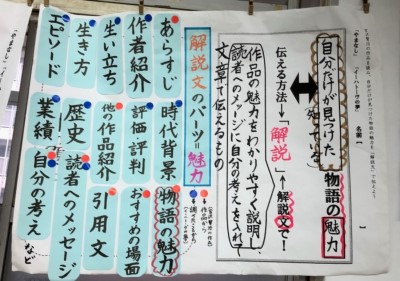 自分だけが見つけた
知っている
物語の魅力
伝える方法→「解説」
↑解説文で!
作品の魅力をわかりやすく説明し、
読者へのメッセージに自分の考えを入れて
文章で伝えるもの
解説文のパーツ=魅力
あらすじ
時代背景
物語の魅力
作者紹介
評価評判
おすすめの場面
生い立ち
他の作品紹介
引用文
生き方
歴史
読者へのメッセージ
エピソード
業績
自分の考え
など
「やまなし」
「イーハトーヴの夢」
名前
「やまなし」